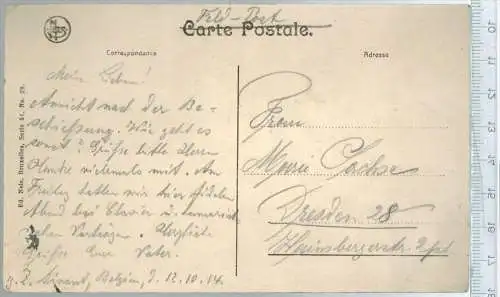 Feld-Post
Carte Postale.
Correspondance
Adresse
Ed. Nels, Bruxelles, Serie 51, No. 29.
Mein Leben!
Ansicht nach der Be-
schießung. Wie geht es
sonst? Grüße bitte Herrn
vielemals mit. Am
Freitag hatten wir hier fidelen
Abend bei Clavier u. humorist-
ischen Vorträgen. Herzliche
Grüße Euer Vater.
Dinant, Belgien, d. 12.10.14.
Frau
Marie Sachse
Dresden 28